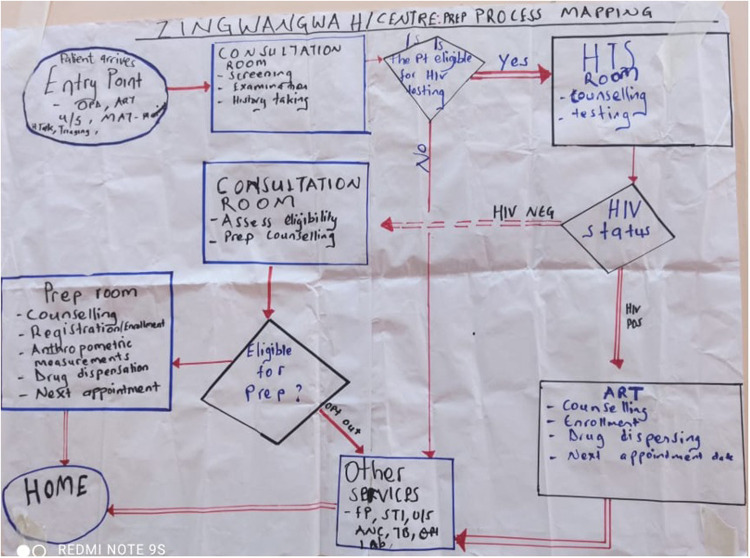 ZINGWANGWA H/CENTRE: PREP PROCESS MAPPING
Patient arrives
Entry Point
- OPD, ART
U/S, MAT-
HTalk, Triaging,
CONSULTATION
ROOM
- Screening
- Examination
- History taking
Is Is
The Pt eligible
for HIV
testing
Yes
HTS
ROOM
- Counselling
- testing
NO
CONSULTATION
ROOM
- Assess eligibility
- Prep counselling
HIV NEG
HIV
status
HIV
POS
Prep room
- Counselling
- Registration/Enrollment
- Anthropometric
measurements
- Drug dispensation
- Next appointment
Eligible
for
Prep?
OPT OUT
ART
- Counselling
- Enrollment
- Drug dispensing
- Next appointment date
HOME
Other
SERVICES
- FP, STI, U/S
ANC, TB, OPD
LAB,
REDMI NOTE 9S